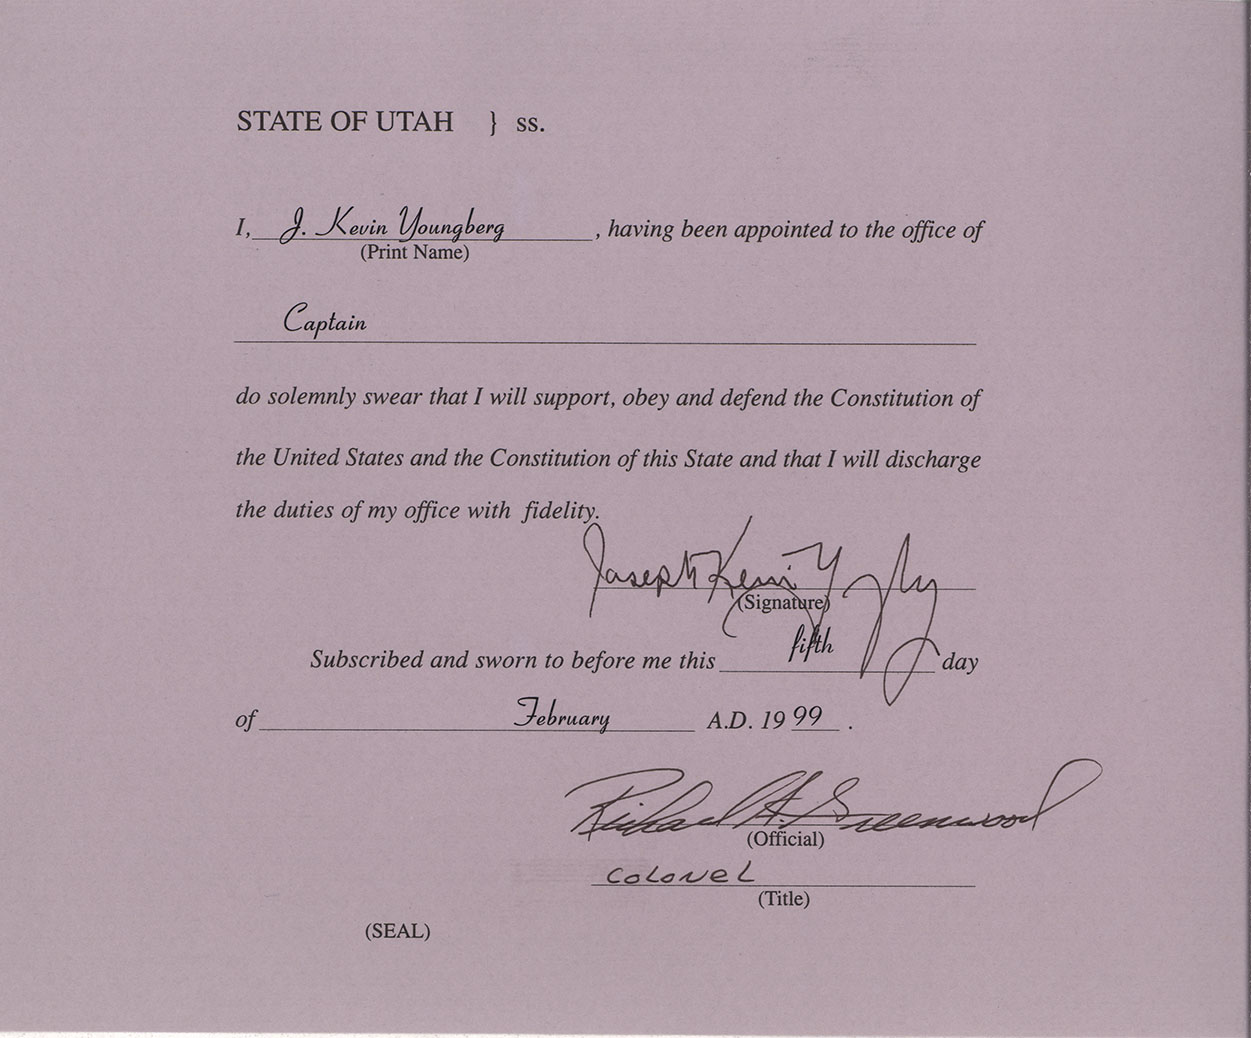 STATE OF UTAH } ss.
I, J. Kevin Youngberg, having been appointed to the office of
(Print Name)
Captain
do solemnly swear that I will support, obey and defend the Constitution of
the United States and the Constitution of this State and that I will discharge
the duties of my office with fidelity.
Joseph Kevin
(Signature)
Subscribed and sworn to before me this fifth day
of February A.D. 19 99 .
Richard A. Greenwood
(Official)
COLONEL
(Title)
(SEAL)